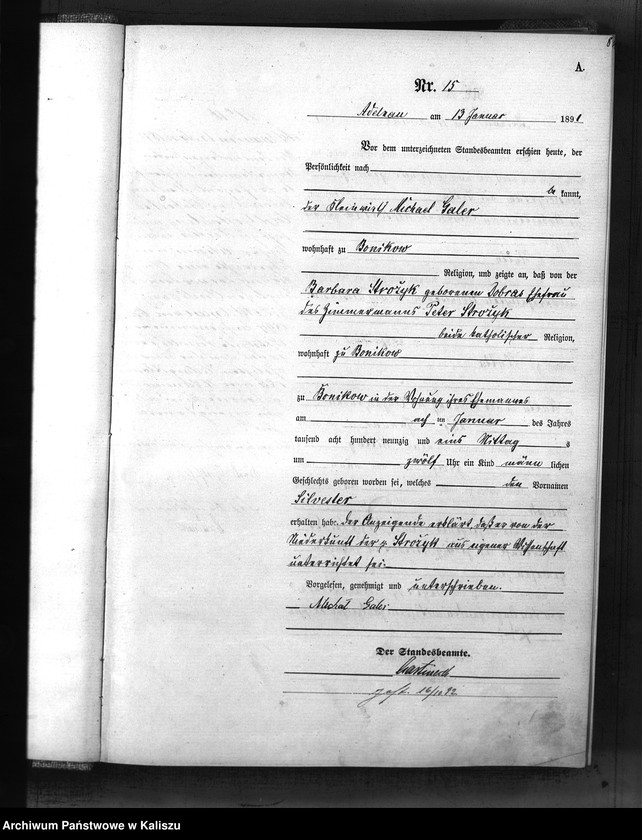 A.
Nr. 15
Adelnau am 13 Januar 1891
Vor dem unterzeichneten Standesbeamten erschien heute, der
Persönlichkeit nach
be kannt,
der Kleinwirth Michael Galer
wohnhaft zu Bonikow
Religion, und zeigte an, daß von der
Barbara Strożyk geborenen Dobras Ehefrau
des Zimmermanns Peter Strożyk
beide katholischer Religion,
wohnhaft zu Bonikow
zu Bonikow in der Wohnung ihres Ehemannes
am im Januar des Jahres
tausend acht hundert neunzig und eins Mittag s
um zwölf Uhr ein Kind männ lichen
Geschlechts geboren worden sei, welches den Vornamen
Silvester
erhalten habe. Der Anzeigende erklärt, daß er von der
Niederkunft der p. Strożyk aus eigener Wissenschaft
unterrichtet sei.
Vorgelesen, genehmigt und unterschrieben.
Michał
Der Standesbeamte.
Archiwum Państwowe w Kaliszu